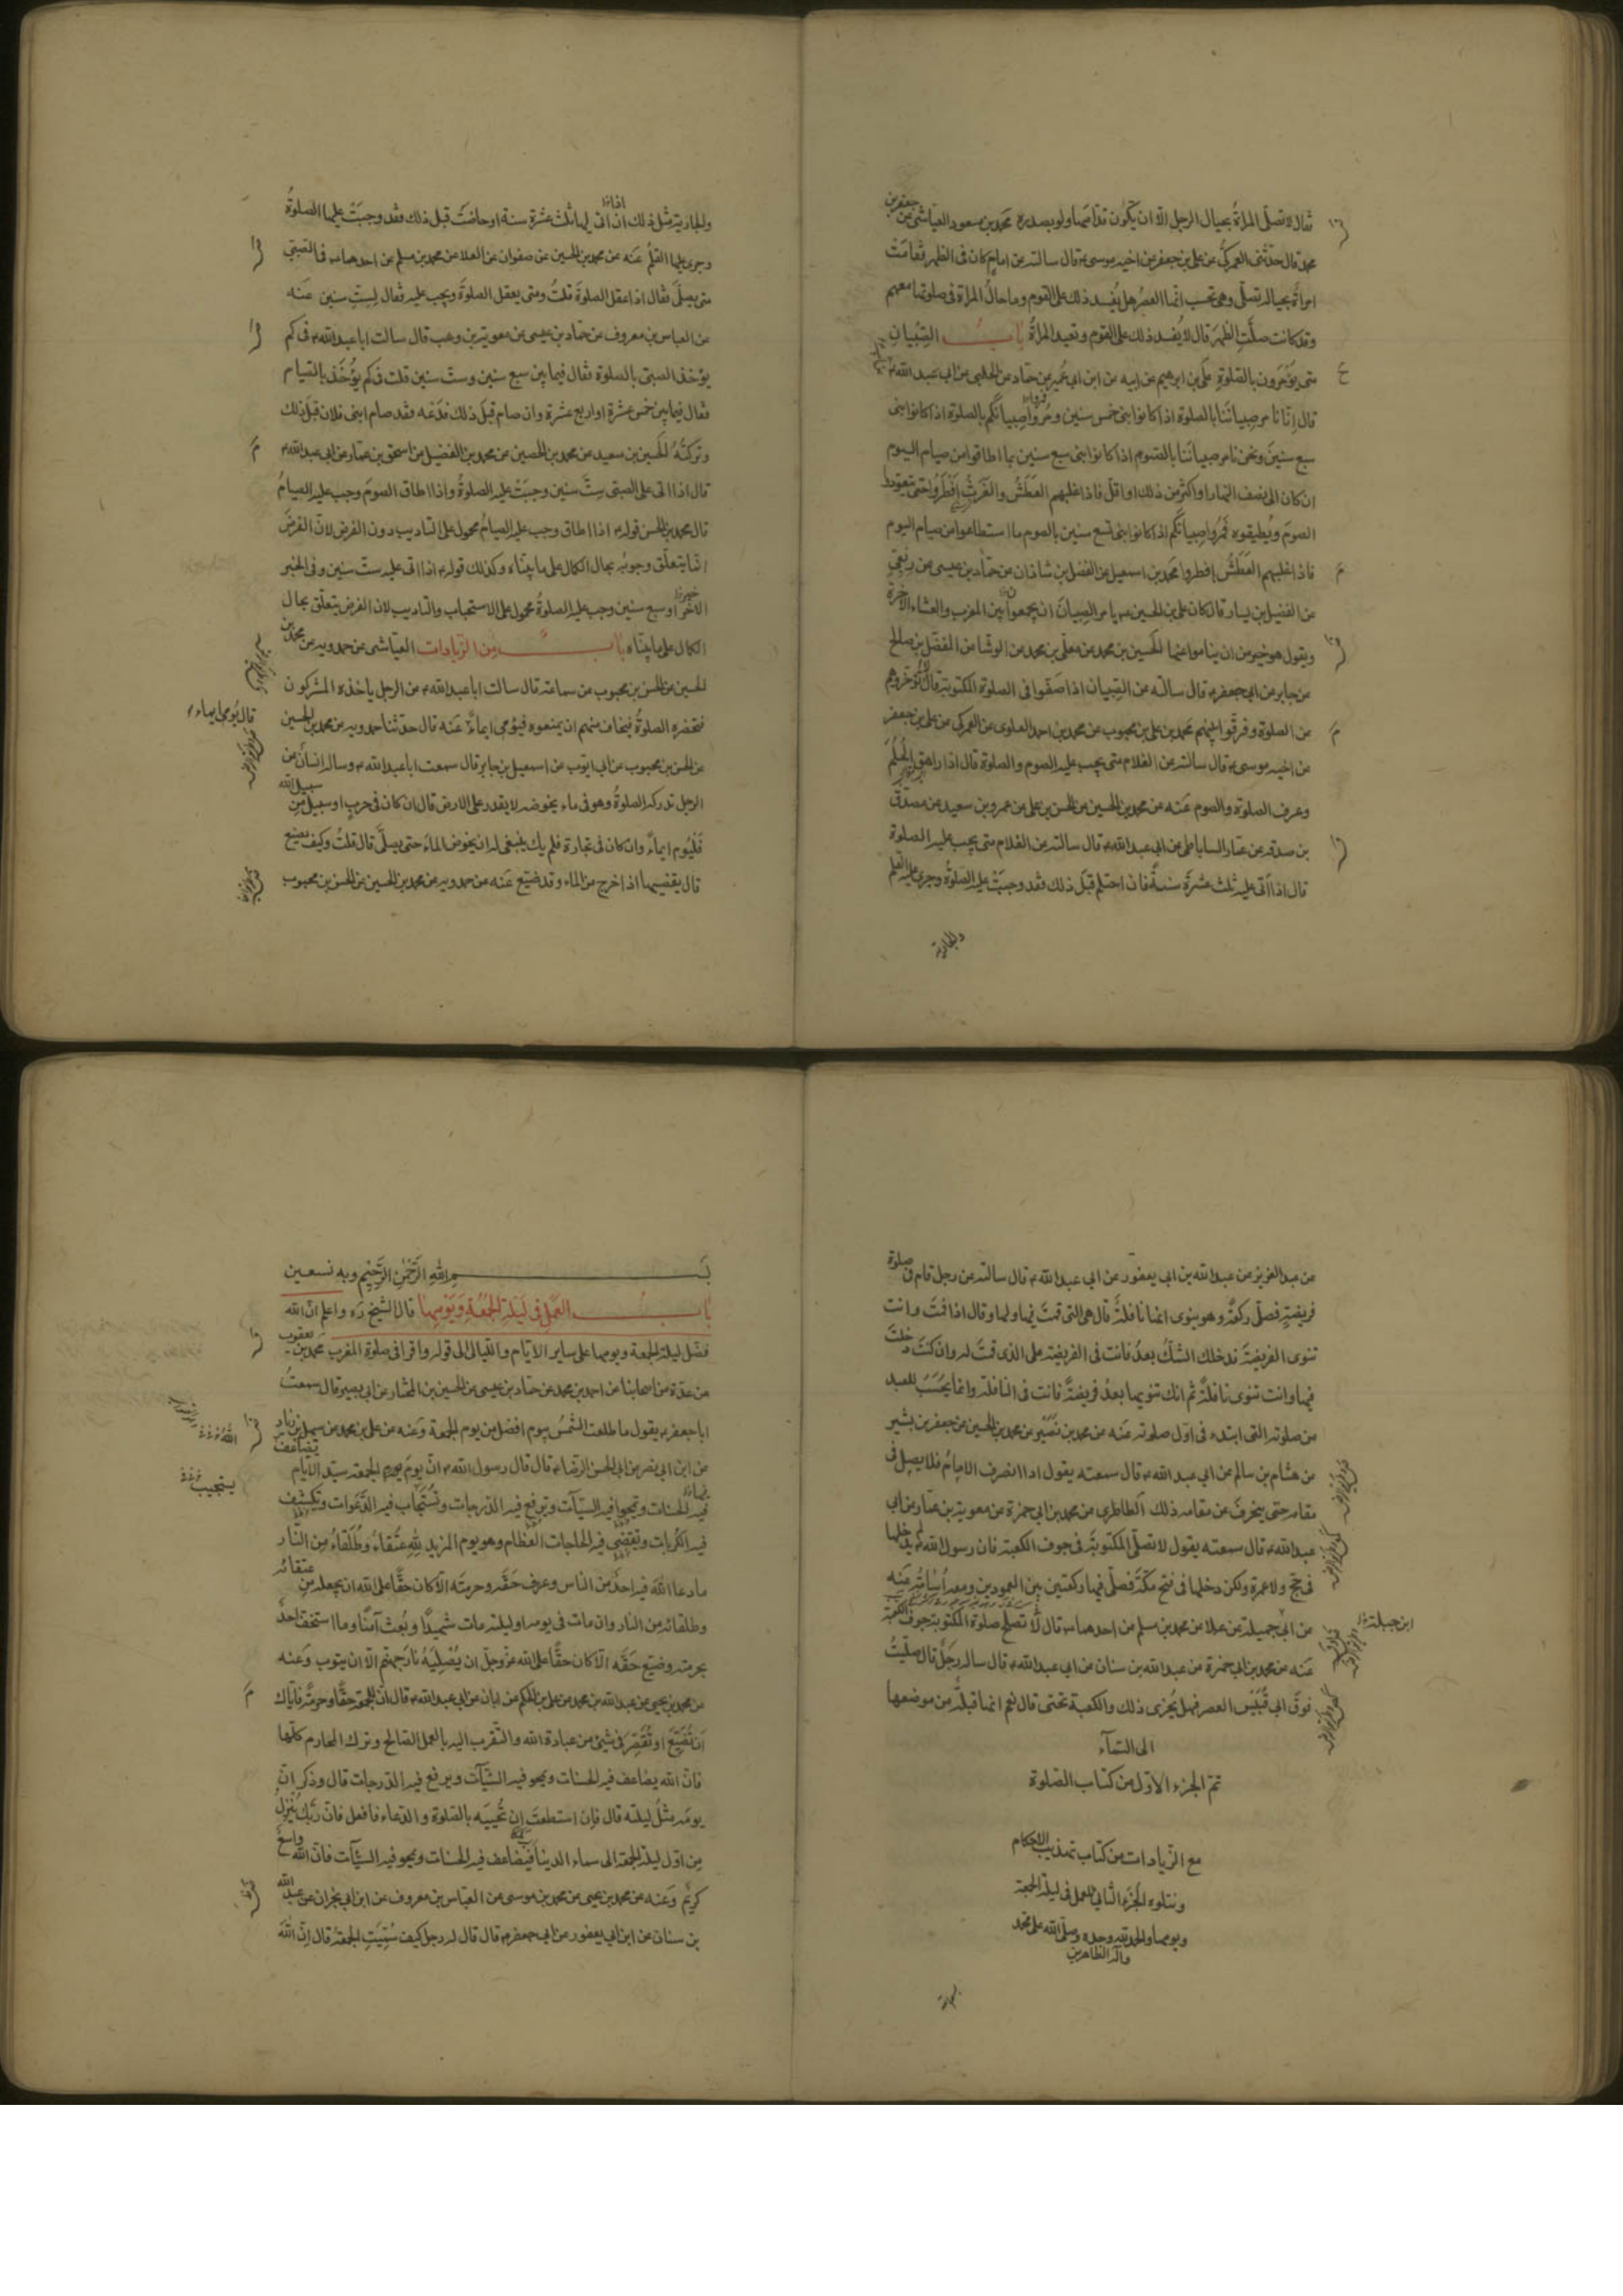 فقال لا تصلّى المراة بحيال الرجل الّا ان يكون قدّامها ولو بصدره محمد بن مسعود العياشى عن جعفر بن
محمد قال حدّثنى العمركى عن على بن جعفر عن اخيه موسى ع قال سالته عن امام كان فى الظهر فقامت
امراة بحياله تصلّى وهى تحسب انّها العصر هل يُفسد ذلك على القوم وما حال المراة فى صلوتها معهم
وقد كانت صلّت الظهر قال لا يُفسد ذلك على القوم وتعيد المراة باب الصّبيان
متى يؤمرون بالصّلوة على بن ابرهيم عن ابيه عن ابن ابى عُمير عن حمّاد عن الحلبى عن ابى عبد الله ع
قال انّا نامر صبياننا بالصلوة اذا كانوا بنى خمس سنين ومُروا صبيانكم بالصلوة اذا كانوا بنى
سبع سنين ونحن نامر صبياننا بالصّوم اذا كانوا بنى سبع سنين بما اطاقوا من صيام اليوم
ان كان الى نصف النهار او اكثر من ذلك او اقلّ فاذا غلبهم العطش والغرث افطروا حتى يتعودوا
الصوم ويُطيقوه فمُروا صبيانكم اذا كانوا بنى تسع سنين بالصوم ما استطاعوا من صيام اليوم
فاذا غلبهم العَطَش افطروا محمد بن اسمعيل عن الفضل بن شاذان عن حمّاد بن عيسى عن ربعى
عن الفضيل بن يسار قال كان على بن الحسين ع يامر الصبيان ان يجمعوا بين المغرب والعشاء الآخرة
ويقول هو خير من ان يناموا عنها الحسين بن محمد عن معلّى بن محمد عن الوشا عن المفضّل بن صالح
عن جابر عن ابى جعفر ع قال سالته عن الصّبيان اذا صَفّوا فى الصلوة المكتوبة قال لا تُؤخّروهم
عن الصلوة وفرّقوا بينهم محمد بن على بن محبوب عن محمد بن احمد العلوى عن العمركى عن على بن جعفر
عن اخيه موسى ع قال سالته عن الغلام متى يجب عليه الصوم والصلوة قال اذا راهق الحُلُم
وعرف الصلوة والصوم عَنه عن محمد بن الحسين عن الحسن بن على عن عمرو بن سعيد عن مصدّق
بن صدقه عن عمّار الساباطى عن ابى عبد الله ع قال سالته عن الغلام متى يجب عليه الصلوة
قال اذا اتى عليه ثلث عشرة سنة فان احتلم قبل ذلك فقد وجبت عليه الصلوة وجرى عليه القلم
والجارية
والجارية مثل ذلك ان اتى لها ثلث عشرة سنة او حاضت قبل ذلك فقد وجبت عليها الصلوة
وجرى عليها القلم عَنه عن محمد بن الحسين عن صفوان عن العلا عن محمد بن مسلم عن احدهما ع فى الصّبى
متى يصلّى فقال اذا عقل الصلوة قلتُ ومتى يعقل الصلوة ويجب عليه فقال لستّ سنين عَنه
عن العباس بن معروف عن حمّاد بن عيسى عن معوية بن وهب قال سالت ابا عبد الله ع فى كم
يؤخذ الصبى بالصلوة فقال فيما بين سبع سنين وستّ سنين قلت فى كم يؤخذ بالصّيام
فقال فيما بين خمس عشرة او اربع عشرة وان صام قبل ذلك فدَعه فقد صام ابنى فلان قبل ذلك
وتركته الحسين بن سعيد عن محمد بن الحصين عن محمد بن الفضيل عن اسحق بن عمّار عن ابى عبد الله ع
قال اذا اتى على الصبى ستّ سنين وجبت عليه الصلوة واذا اطاق الصوم وجب عليه الصيام
قال محمد بن الحسن قوله ع اذا اطاق وجب عليه الصيام محمول على التاديب دون الفرض لانّ الفرض
انّما يتعلّق وجوبه بحال الكمال على ما بيّنّاه وكذلك قوله ع اذا اتى عليه ستّ سنين وفى الخبر
الاخر او سبع سنين وجب عليه الصلوة محمول على الاستحباب والتاديب لان الفرض يتعلّق بحال
الكمال على ما بيّنّاه باب من الزّيادات العيّاشى عن حمدويه عن محمد بن
الحسين عن الحسن بن محبوب عن سماعة قال سالت ابا عبد الله ع عن الرجل ياخذه المشركون
فتحضره الصلوة فيخاف منهم ان يمنعوه فيؤمى ايماءً عَنه قال حدّثنا حمدويه عن محمد بن الحسين
قال يؤمى ايماء
عن الحسن بن محبوب عن ابى ايوب عن اسمعيل بن جابر قال سمعت ابا عبد الله ع وساله انسان عن
الرجل تدركه الصلوة وهو فى ماء يخوضه لا يقدر على الارض قال ان كان فى حرب او سبيل من سبيل الله
فليؤم ايماءً وان كان فى تجارة فلم يك ينبغى له ان يخوض الماء حتى يصلّى قال قلت وكيف يصنع
قال يقضيها اذا خرج من الماء وقد ضيّع عَنه عن حمدويه عن محمد بن الحسين عن الحسن بن محبوب
عن عبد العزيز عن عبد الله بن ابى يعفور عن ابى عبد الله ع قال سالته عن رجل قام فى صلوة
فريضة فصلّى ركعة وهو ينوى انها نافلة قال هى التى قمت فيها ولها وقال اذا قمت وانت
تنوى الفريضة فدخلك الشكّ بعد فانت فى الفريضة على الذى قمت له وان كنت دخلت
فيها وانت تنوى نافلة ثم انك تنويها بعد فريضة فانت فى النافلة وانما يحسب للعبد
من صلوته التى ابتدء فى اوّل صلوته عَنه عن محمد بن نُصَير عن محمد بن الحسين عن جعفر بن بشير
عن هشام بن سالم عن ابى عبد الله ع قال سمعته يقول اذا انصرف الامام فلا يصلى فى
مقامه حتى ينحرف عن مقامه ذلك الطاطرى عن محمد بن ابى حمزة عن معوية بن عمّار عن ابى
عبد الله ع قال سمعته يقول لا تصلّى المكتوبة فى جوف الكعبة فان رسول الله لم يدخلها
فى حجّ ولا عمرة ولكن دخلها فى فتح مكّة فصلّى فيها ركعتين بين العمودين ومعه اُسامة عَنه
عن ابى جميلة عن علا عن محمد بن مسلم عن احدهما ع قال لا تصلح صلوة المكتوبة جوف الكعبة
ابن جبلة
عَنه عن محمد بن ابى حمزة عن عبد الله بن سنان عن ابى عبد الله ع قال ساله رجل قال صلّيت
فوق ابى قُبَيس العصر فهل يُجزى ذلك والكعبة تحتى قال نعم انها قبلة من موضعها
الى السّمآء
تمّ الجزء الاوّل من كتاب الصّلوة
مع الزّيادات من كتاب تهذيب الاحكام
ونتلوه الجزء الثانى العمل فى ليلة الجمعة
ويومها والحمد لله وحده وصلّى الله على محمّد
وآله الطاهرين
بسم الله الرّحمن الرّحيم وبه نستعين
باب العمل فى ليلة الجمعة ويومها قال الشيخ ره واعلم انّ الله
فضّل ليلة الجمعة ويومها على ساير الايّام والليالى الى قوله واقرا فى صلوة المغرب محمّد بن يعقوب
عن عدّة من اصحابنا عن احمد بن محمد عن حمّاد بن عيسى عن الحسين بن المختار عن ابى بصير قال سمعت
ابا جعفر ع يقول ما طلعت الشمس بيوم افضل من يوم الجمعة وعَنه عن على بن محمد عن سهل بن زياد
عن ابن ابى نصر عن ابى الحسن الرّضا ع قال قال رسول الله ع انّ يوم الجمعة سيّد الايّام يضاعف
فيه الحسنات ويمحوا فيه السيّآت ويرفع فيه الدّرجات وتُستجاب فيه الدّعوات وتكشف
يستجيب
فيه الكربات وتقضى فيه الحاجات العظام وهو يوم المزيد لله عتقاءُ وطلقاءُ من النّار
ما دعا الله فيه احدٌ من الناس وعرف حقّه وحرمته الّا كان حقّا على الله ان يجعله من عتقائه
وطلقائه من النار وان مات فى يومه او ليلته مات شهيدًا وبُعث آمنًا وما استخفّ احدٌ
بحرمته وضيّع حقّه الّا كان حقّا على الله عزّ وجلّ ان يُصليه نار جهنّم الّا ان يتوب وعَنه
عن محمد بن يحيى عن عبد الله بن محمد عن على بن الحكم عن ابان عن ابى عبد الله ع قال انّ للجمعة حقّا وحرمة فايّاك
ان تُضيّع او تُقصّر فى شئ من عبادة الله والتّقرب اليه بالعمل الصّالح وترك المحارم كلّها
فانّ الله يضاعف فيه الحسنات ويمحو فيه السّيّآت ويرفع فيه الدّرجات قال وذكر انّ
يومه مثل ليلته قال فان استطعت ان تُحييه بالصّلوة والدّعاء فافعل فانّ ربّك يُنزل
من اوّل ليلة الجمعة الى سماء الدنيا فيضاعف فيه الحسنات ويمحو فيه السّيّآت فانّ الله واسع
كريم وعَنه عن محمد بن يحيى عن محمد بن موسى عن العباس بن معروف عن ابن ابى نجران عن عبد الله
بن سنان عن ابن ابى يعفور عن ابى جعفر ع قال قال له رجل كيف سُمّيت الجمعة قال انّ الله